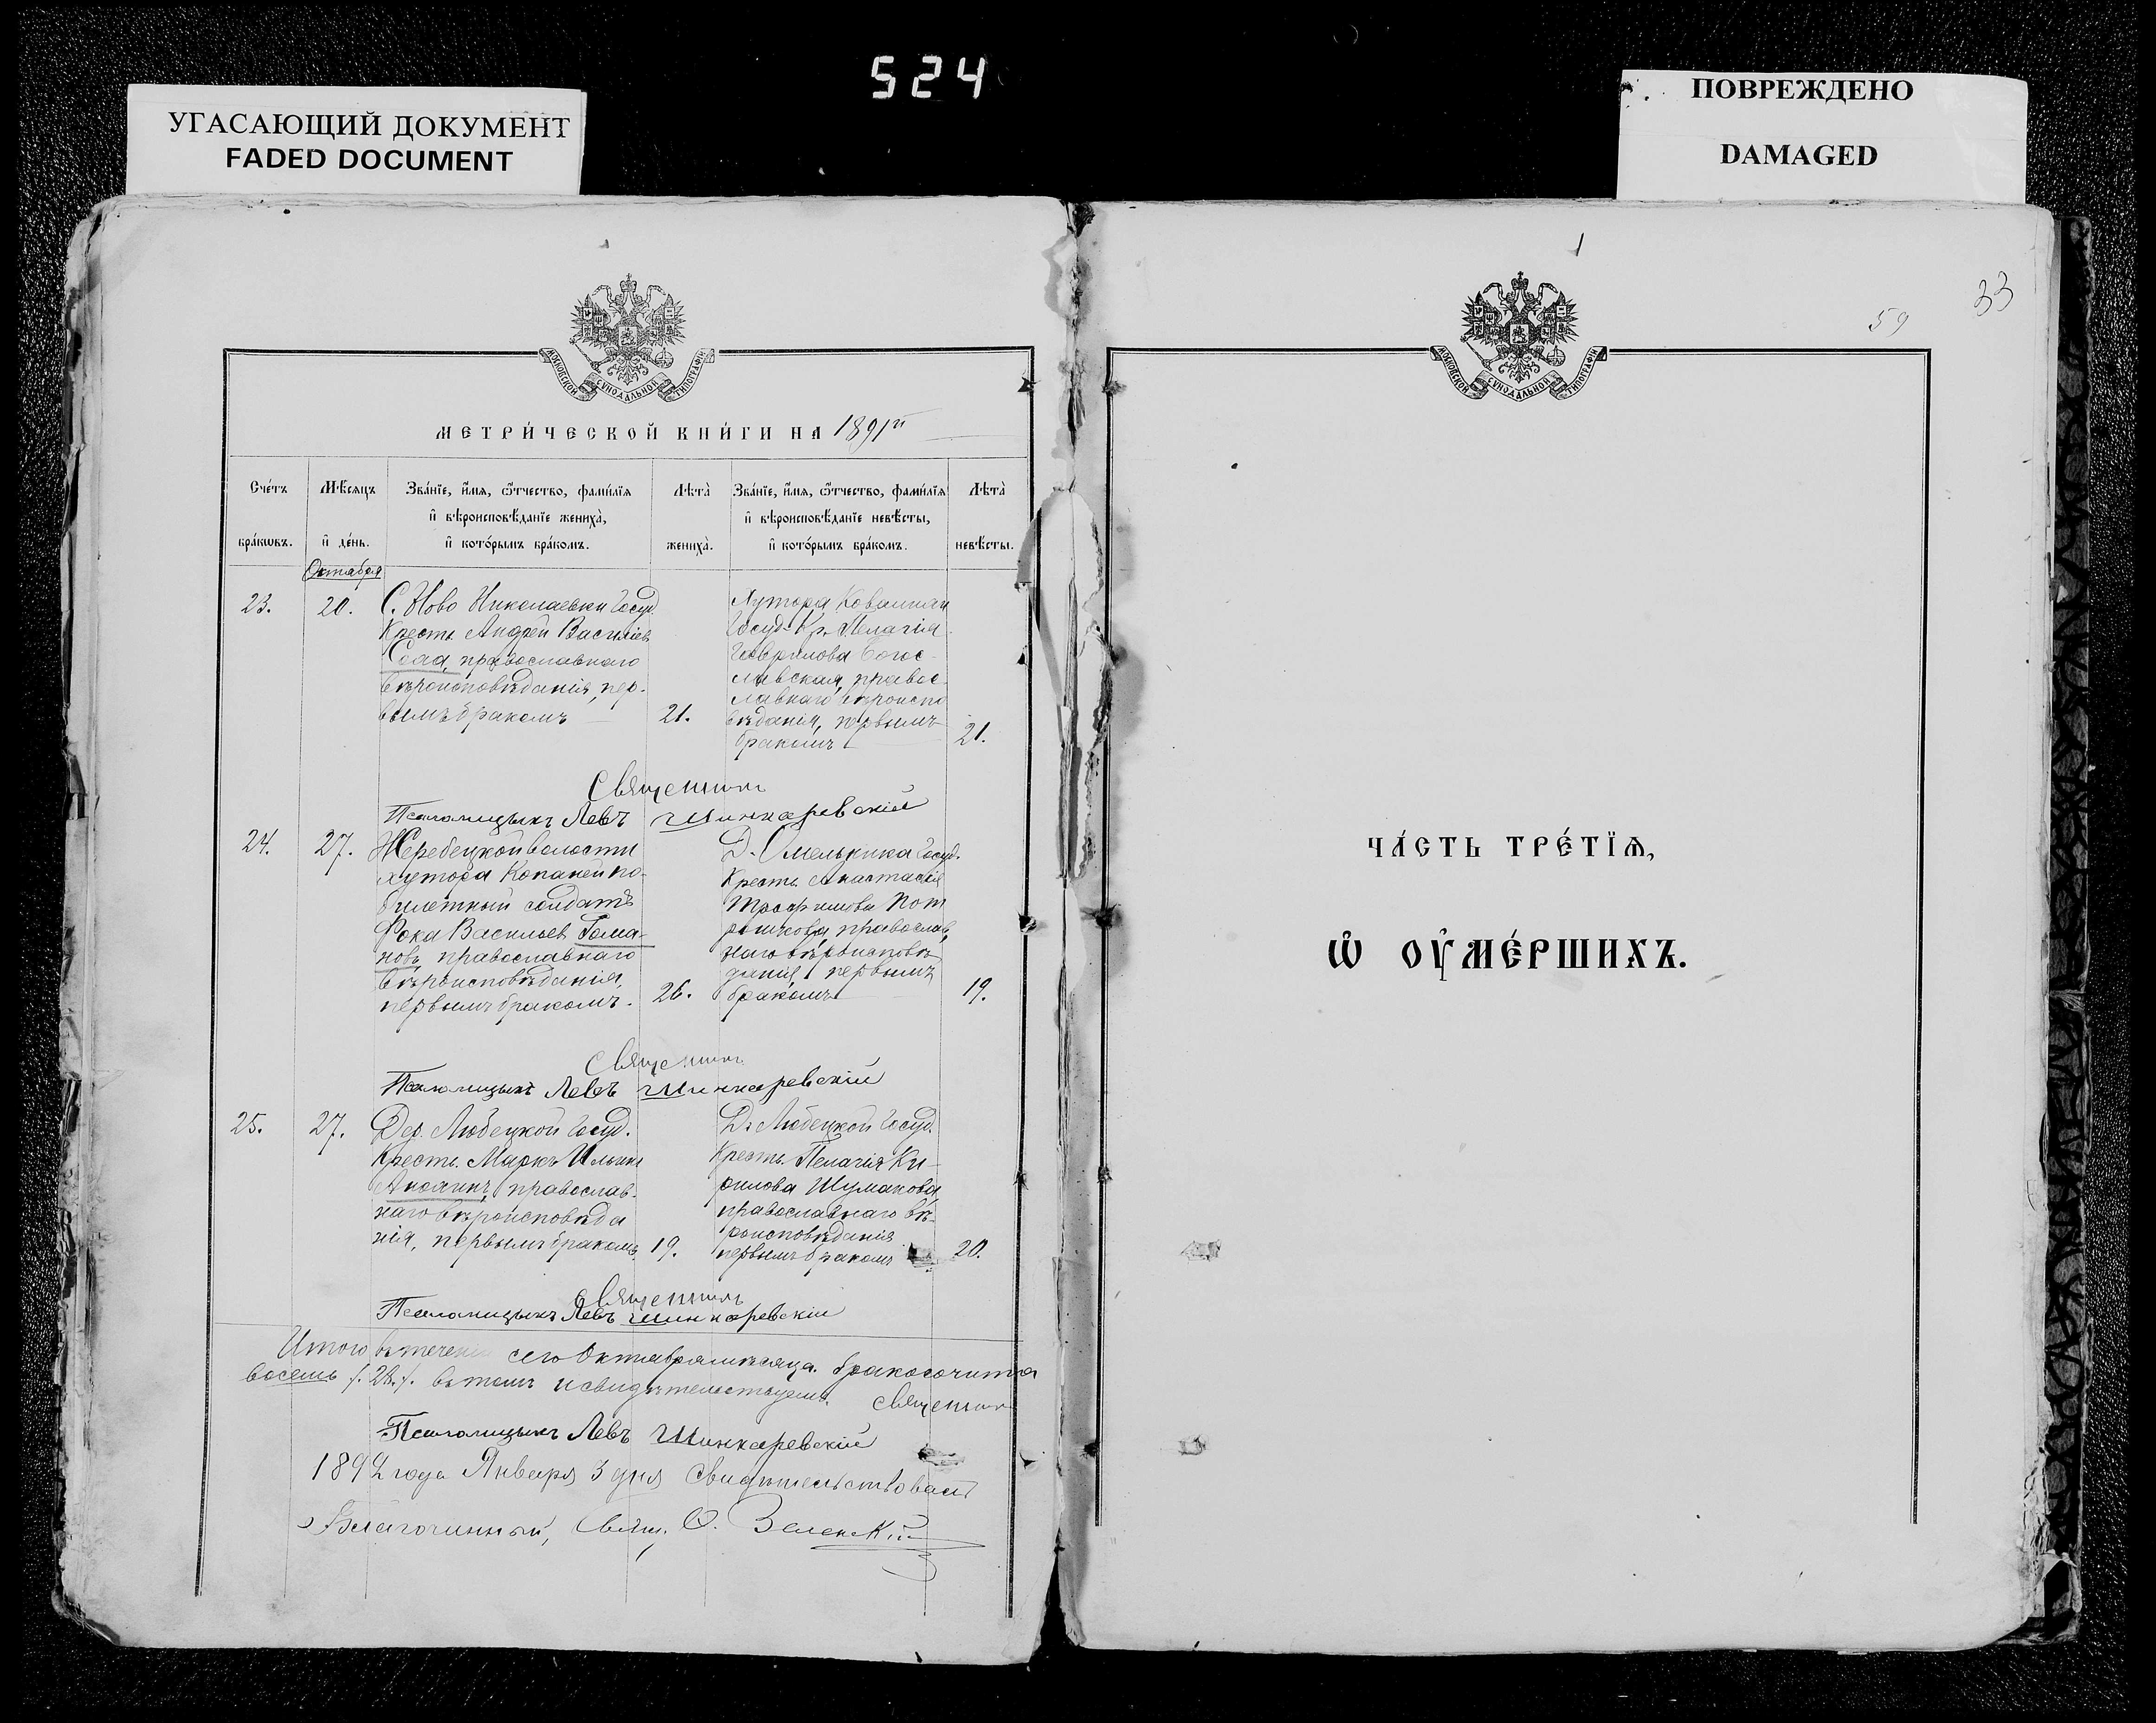 524
УГАСАЮЩИЙ ДОКУМЕНТ
FADED DOCUMENT
ПОВРЕЖДЕНО
DAMAGED
МОСКОВСКОЙ СѴНОДАЛЬНОЙ ТИПОГРАФІИ
МЕТРИ́ЧЕСКОЙ КНИ́ГИ НА 1891й
Сче́тъ бра́кωвъ.
Мѣ́сяцъ и҆ де́нь.
Зва́нїе, и҆́мя, ѻ҆́тчество, фами́лїя
и҆ вѣроисповѣ́данїе жениха̀,
и҆ кото́рымъ бра́комъ.
Лѣта̀ жениха̀.
Зва́нїе, и҆́мя, ѻ҆́тчество, фами́лїя
и҆ вѣроисповѣ́данїе невѣ́сты,
и҆ кото́рымъ бра́комъ.
Лѣта̀ невѣ́сты.
Октабря
23.
20.
С. Ново Николаевки Госуд
Кресть. Андрей Василіев
православнаго
вѣроисповѣданія, пер-
вымъ бракомъ
21.
Хутора
Госуд. Кр. Пелагія
Гаврилова Богос-
лавская, правос-
лавнаго вѣроиспо
вѣданія, первымъ
бракомъ
21.
Священник
Псаломщикъ Левъ Шинкаревскій
24.
27.
Жеребецкой волости
хутора Копаней по-
билетный солдатъ
Фока Васильев Гома-
новъ, православнаго
вѣроисповѣданія,
первымъ бракомъ.
26.
Д. Омельника Госуд.
Кресть. Анастасія
Трофимова
православ
наго вѣроисповѣ
данія, первымъ
бракомъ
19.
Священник
Псаломщикъ Левъ Шинкаревскій
25.
27.
Дер. Любецкой Госуд.
Кресть. Маркъ Ильин
православ-
наго вѣроисповѣда
нія, первымъ бракомъ
19.
Д. Любецкой Госуд.
Кресть. Пелагія Ки-
рилова Шумакова,
православнаго вѣ-
роисповѣданія
первымъ бракомъ
20.
Священник
Псаломщикъ Левъ Шинкаревскій
Итого въ течен сего Октября мѣсяца. бракосочита
восемь /. 28. /. въ томъ и свидѣтельствуемъ. Священник
Псаломщикъ Левъ Шинкаревскій
1892 года Января 3 дня Свидѣтельствовалъ
Благочинный, Свящ. Ѳ. Зеленскій
1
59
33
МОСКОВСКОЙ СѴНОДАЛЬНОЙ ТИПОГРАФІИ
ЧА́СТЬ ТРЕ́ТЇѦ,
Ѡ҆ ОУ҆МЕ́РШИХЪ.